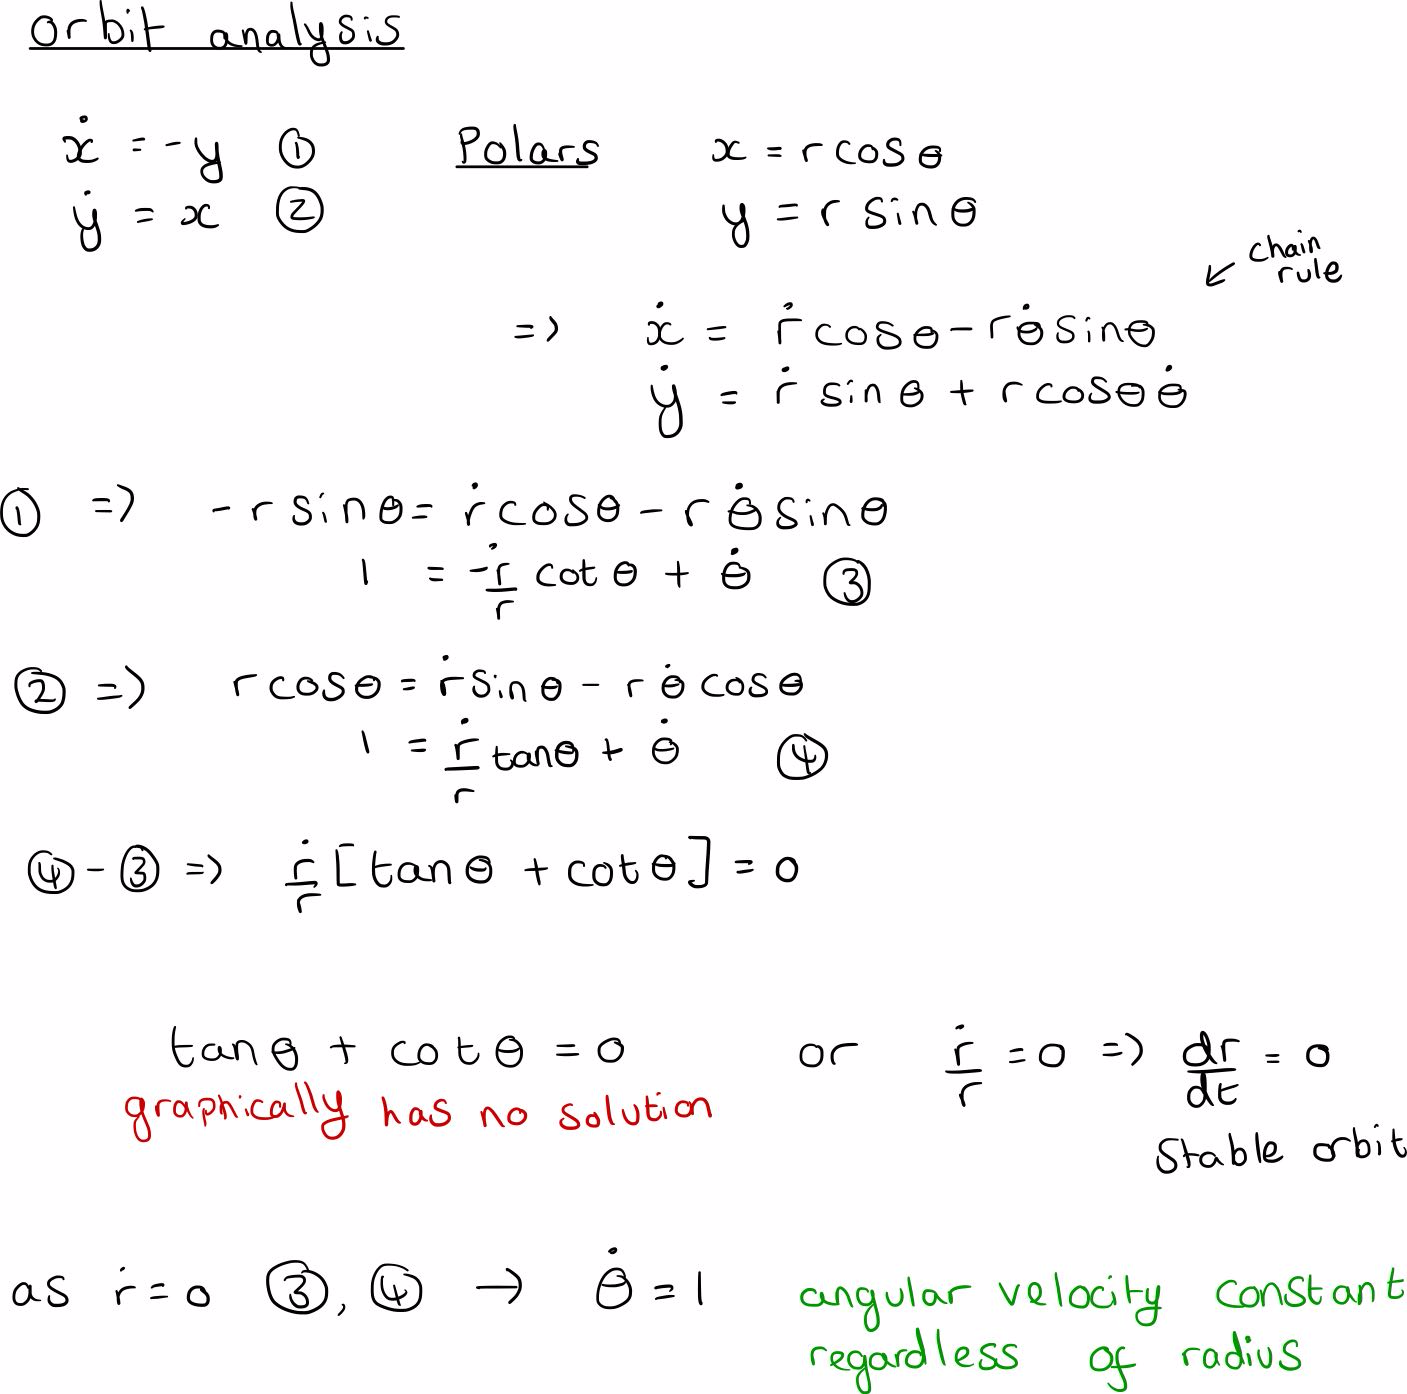 orbit analysis
ẋ = -y ① Polars x = r cos θ
ẏ = x ② y = r sin θ
chain
rule
=> ẋ = ṙ cos θ - r θ̇ sin θ
ẏ = ṙ sin θ + r cos θ θ̇
① => - r sin θ = ṙ cos θ - r θ̇ sin θ
1 = -ṙ/r cot θ + θ̇ ③
② => r cos θ = ṙ sin θ - r θ̇ cos θ
1 = ṙ/r tan θ + θ̇ ④
④ - ③ => ṙ/r [tan θ + cot θ] = 0
tan θ + cot θ = 0 or ṙ/r = 0 => dr/dt = 0
graphically has no solution
Stable orbit
as ṙ = 0 ③, ④ → θ̇ = 1 angular velocity constant
regardless of radius